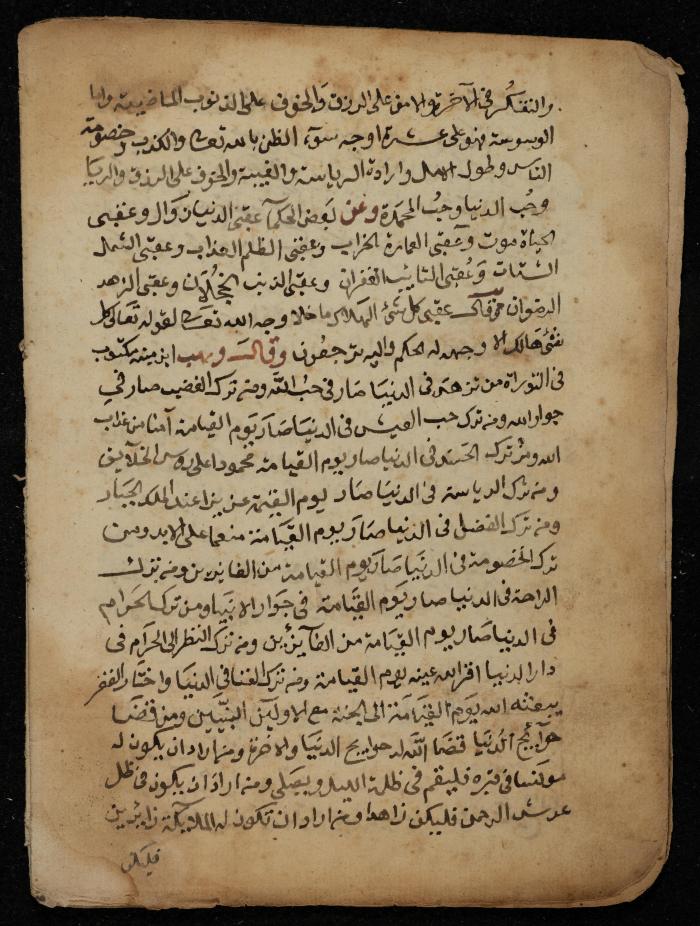 والتفكر في الآخرة والامن على الرزق والخوف على الذنوب الماضية واما
الوسوسة فهو على عشرة اوجه سوء الظن بالله تعالى والكذب وخصومة
الناس وطول الامل وارادة الرياسة والغيبة والخوف على الرزق والريا
وحب الدنيا وحب المحمدة وعن بعض الحكمآ عقبى الدنيا زوال وعقبى
الحياة موت وعقبى العمارة الخراب وعقبى الظلم العذاب وعقبى الشمل
الشتات وعقبى التايب الغفران وعقبى الذنب الخذلان وعقبى الزهد
الرضوان وقال عقبى كل شئ الهلاك ما خلا وجه الله تعالى لقوله تعالى كل
شئ هالك الا وجهه له الحكم واليه ترجعون وقال وهب ابن منبه مكتوب
في التوراة من تزهد في الدنيا صار في حب الله ومن ترك الغضب صار في
جوار الله ومن ترك حب العيش في الدنيا صار يوم القيامة آمنا من عذاب
الله ومن ترك الحسد في الدنيا صار يوم القيامة محمودا على روس الخلآيق
ومن ترك الرياسة في الدنيا صار يوم القيمة عزيزا عند الملك الجبار
ومن ترك الفضل في الدنيا صار يوم القيامة منعما على الابد ومن
ترك الخصومة في الدنيا صار يوم القيامة من الفايزين ومن ترك
الراحة في الدنيا صار يوم القيامة في جوار الانبيا ومن ترك الحرام
في الدنيا صار يوم القيامة من الفآيزين ومن ترك النظر الى الحرام في
دار الدنيا اقر الله عينه يوم القيامة ومن ترك الغنا في الدنيا واختار الفقر
يبعثه الله يوم القيامة الى الجنة مع الاولين النبيين ومن قضا
حوآئج الدنيا قضا الله له حوايج الدنيا والاخرة ومن اراد ان يكون له
مونسا في قبره فليقم في ظلمة الليل ويصلى ومن اراد ان يكون في ظل
عرش الرحمن فليكن زاهدا ومن اراد ان تكون له الملايكة زايرين
فليكن